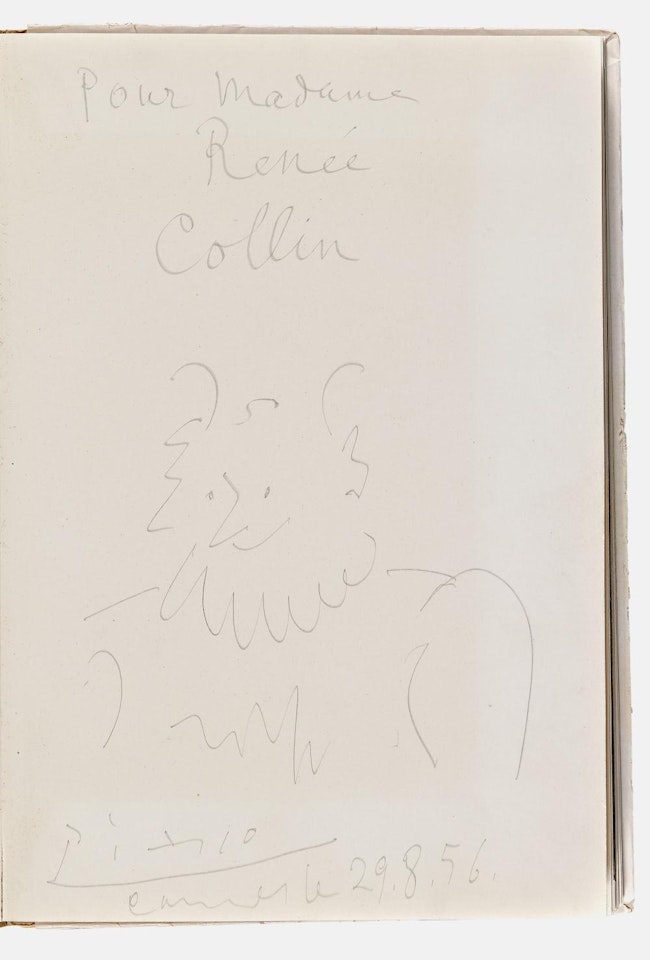 Pour Madame
Renée
Collin
Picasso
Cannes le 29.8.56.